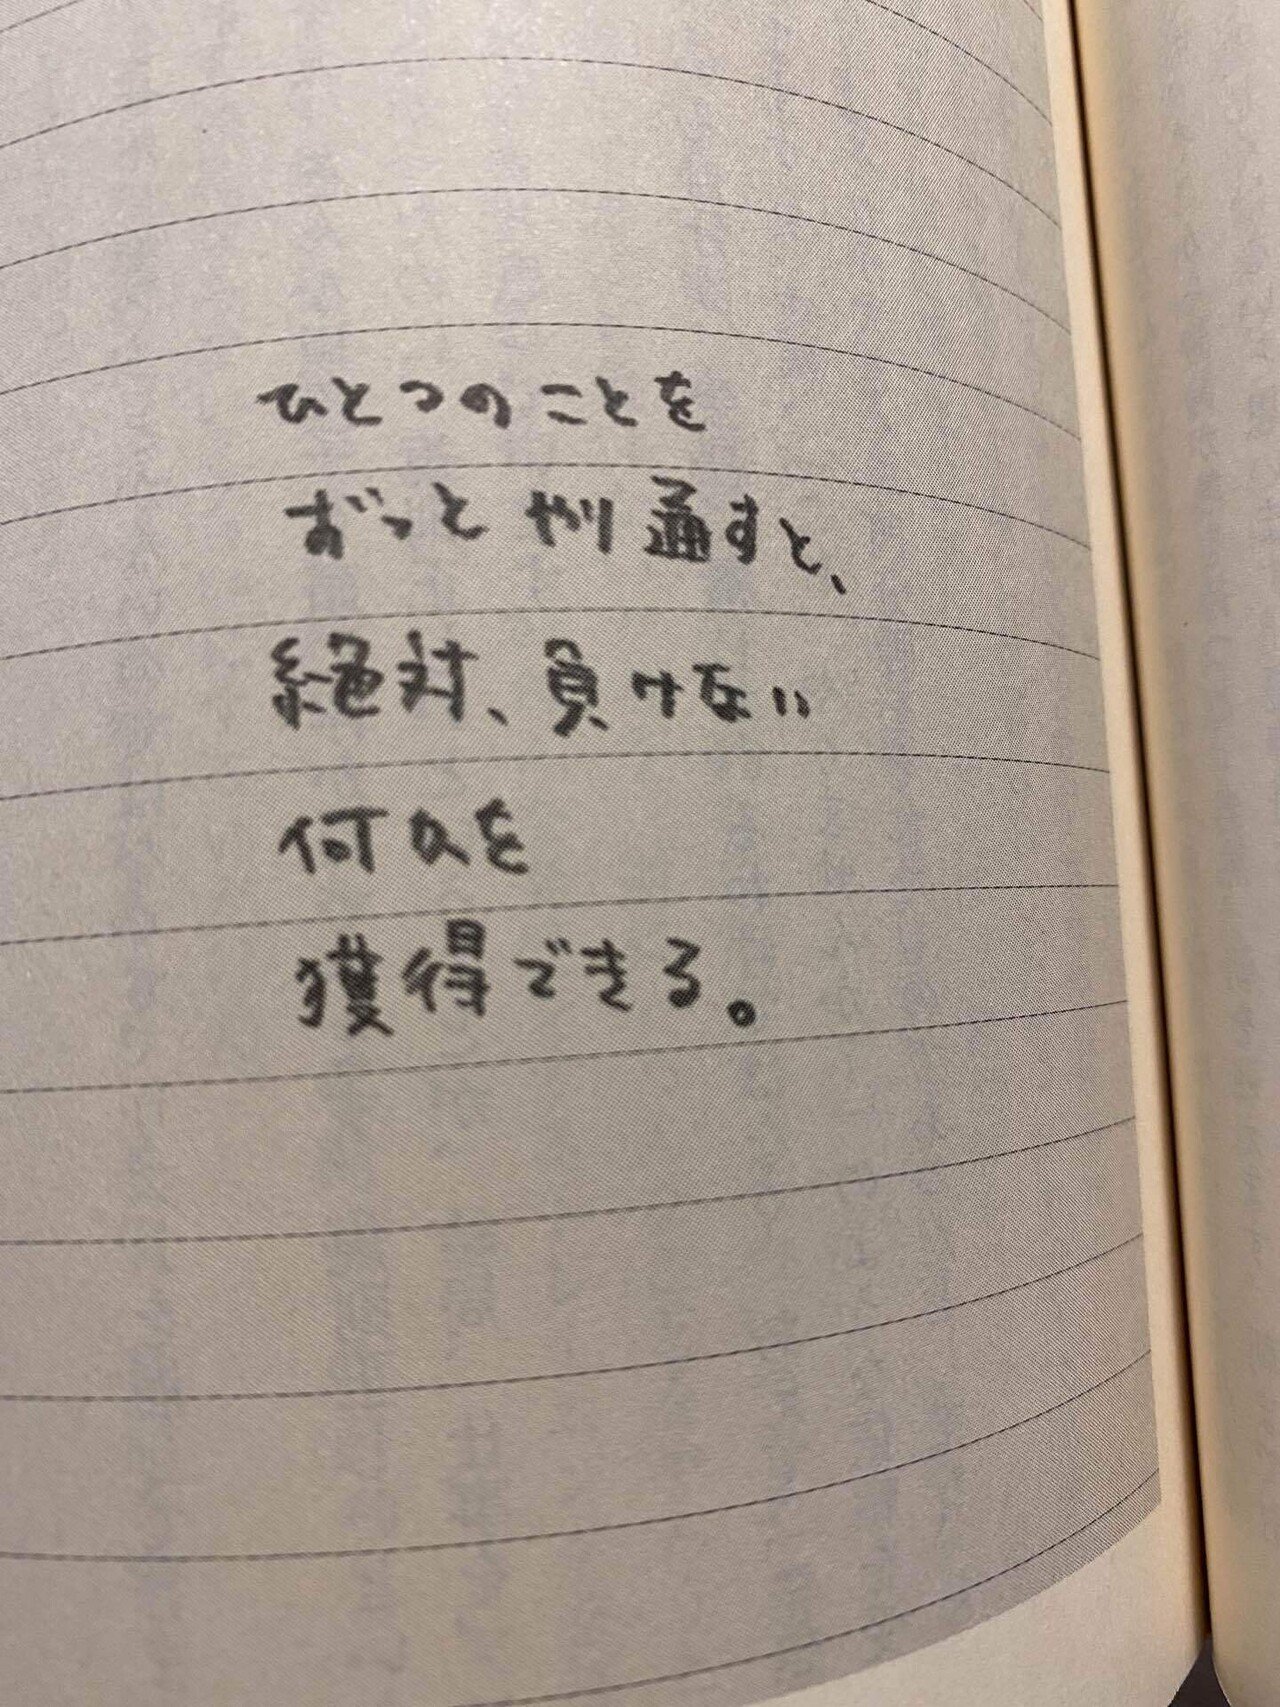 ひとつのことを
ずっとやり通すと、
絶対、負けない
何かを
獲得できる。